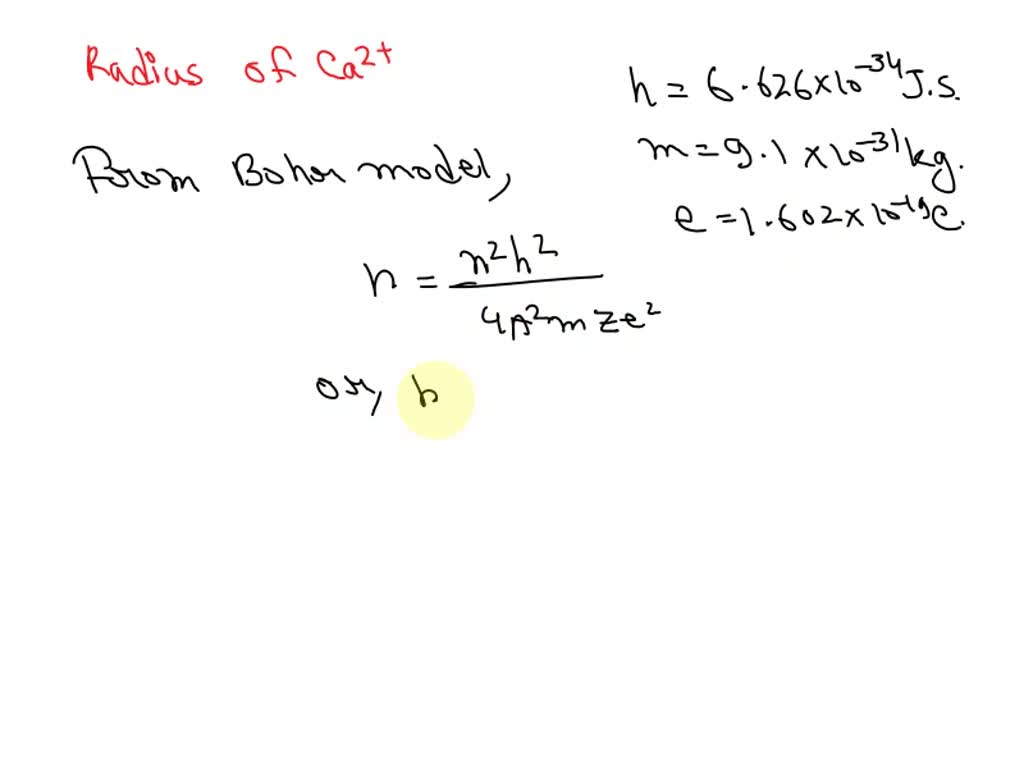 Radius of Ca²⁺
h = 6.626×10⁻³⁴ J.s.
m = 9.1 ×10⁻³¹ kg.
e = 1.602×10⁻¹⁹ C.
From Bohor model,
r = n²h² / 4π²mze²
or, r